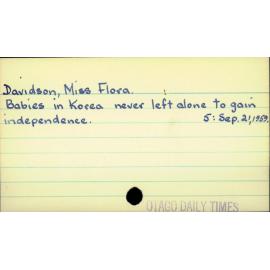 Davidson, Miss Flora.
Babies in Korea never left alone to gain
independence. 5: Sep. 21, 1959.
OTAGO DAILY TIMES